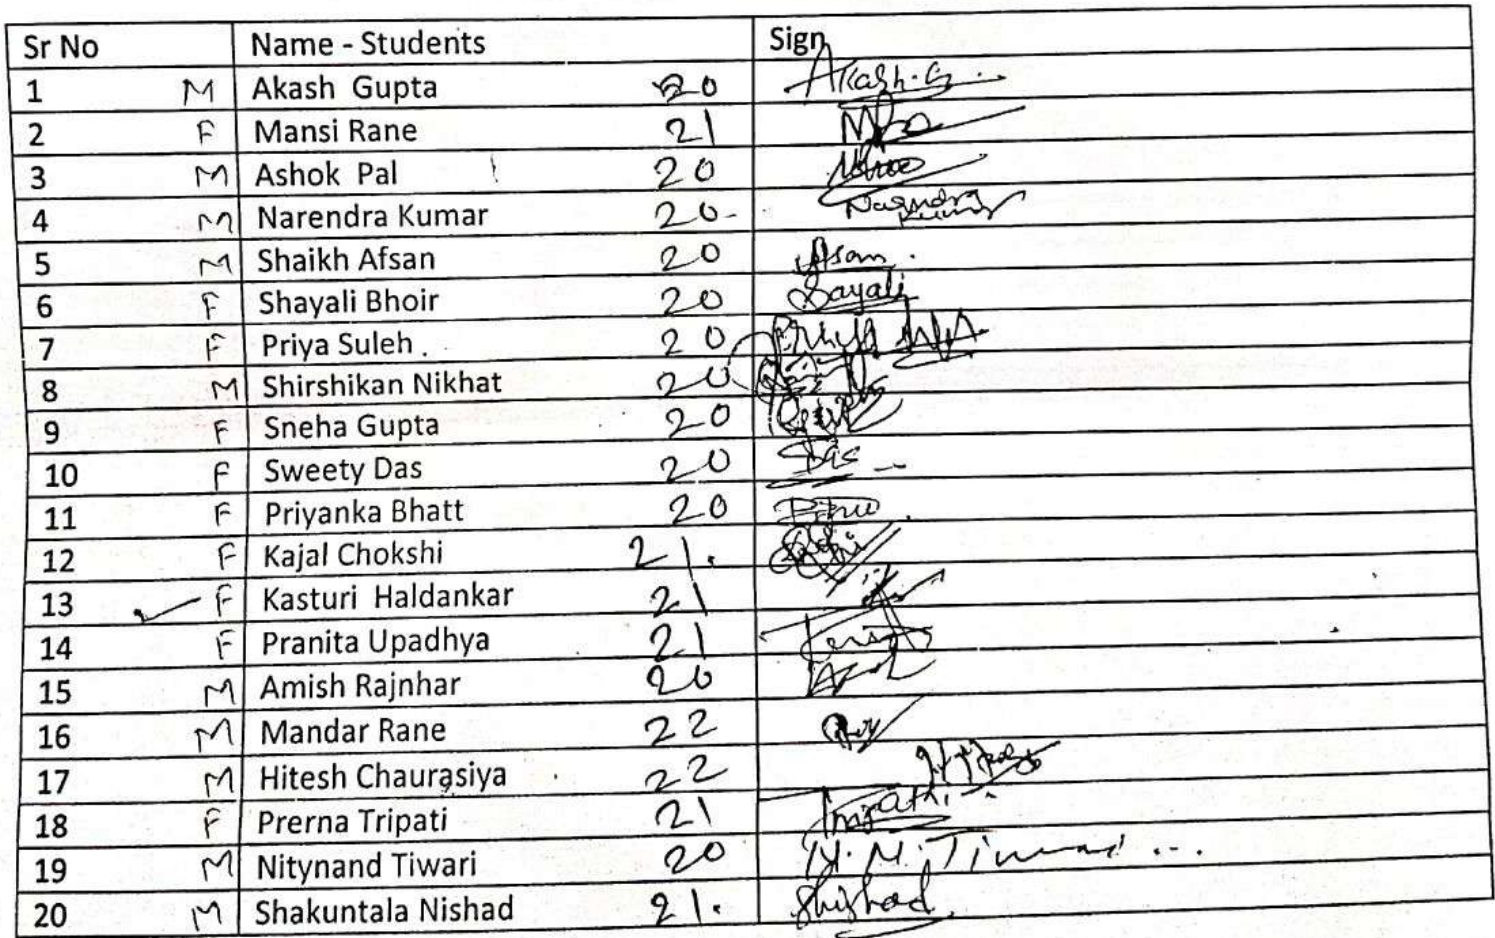 Sr No Name - Students Sign
1 M Akash Gupta 20 Akash.G.
2 F Mansi Rane 21
3 M Ashok Pal 20
4 M Narendra Kumar 20- Narendra Kumar
5 M Shaikh Afsan 20
6 F Shayali Bhoir 20 Sayali
7 F Priya Suleh . 20
8 M Shirshikan Nikhat 20
9 F Sneha Gupta 20
10 F Sweety Das 20 Das
11 F Priyanka Bhatt 20
12 F Kajal Chokshi 21.
13 F Kasturi Haldankar 21
14 F Pranita Upadhya 21
15 M Amish Rajnhar 20
16 M Mandar Rane 22
17 M Hitesh Chaurasiya 22
18 F Prerna Tripati 21
19 M Nitynand Tiwari 20
20 M Shakuntala Nishad 21.